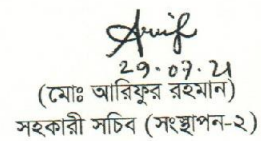 Arif
29.07.21
(মোঃ আরিফুর রহমান)
সহকারী সচিব (সংস্থাপন-২)